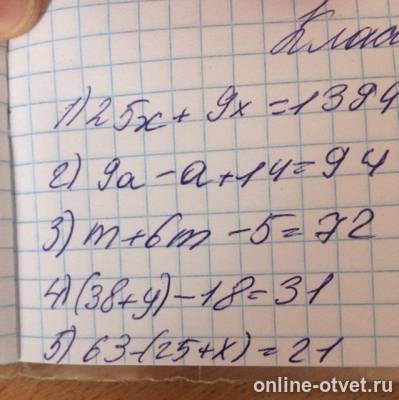 Клас
1) 25x + 9x = 1394
2) 9a - a + 14 = 94
3) m + 6m - 5 = 72
4) (38 + y) - 18 = 31
5) 63 - (25 + x) = 21
online-otvet.ru